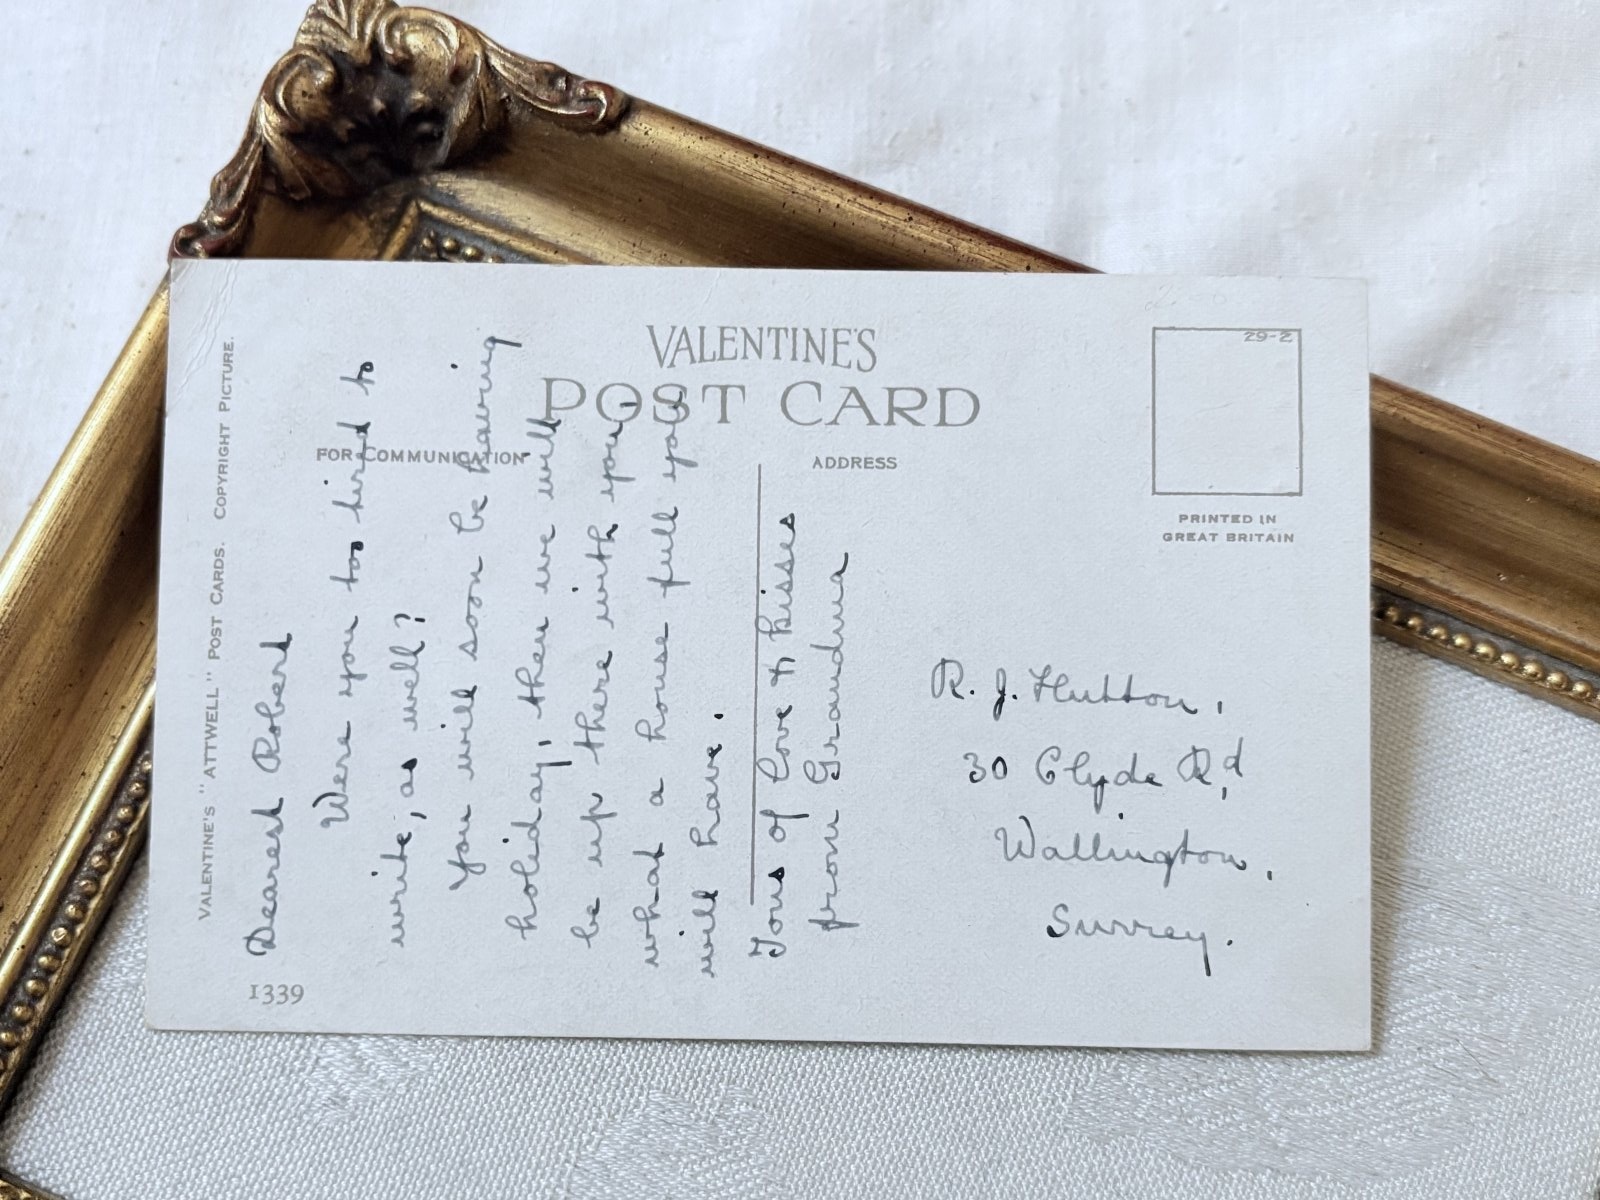 VALENTINE'S
POST CARD
FOR COMMUNICATION
ADDRESS
29-2
PRINTED IN
GREAT BRITAIN
VALENTINE'S "ATTWELL" POST CARDS. COPYRIGHT PICTURE.
1339
Dearest Robert
Were you too tired to
write, as well?
You will soon be having
holiday, then we will
be up there with you,
what a house full you
will have.
Tons of love & kisses
from Grandma
R. J. Hutton,
30 Clyde Rd,
Wallington,
Surrey.